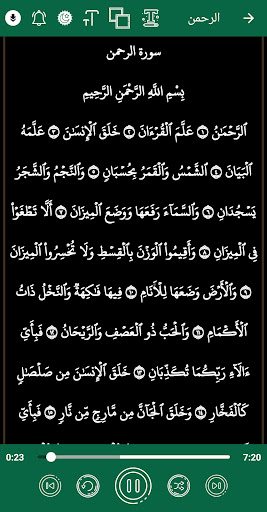 الرحمن
سورة الرحمن
بِسْمِ اللَّهِ الرَّحْمَٰنِ الرَّحِيمِ
ٱلرَّحْمَٰنُ ١ عَلَّمَ ٱلْقُرْءَانَ ٢ خَلَقَ ٱلْإِنسَٰنَ ٣ عَلَّمَهُ
ٱلْبَيَانَ ٤ ٱلشَّمْسُ وَٱلْقَمَرُ بِحُسْبَانٍ ٥ وَٱلنَّجْمُ وَٱلشَّجَرُ
يَسْجُدَانِ ٦ وَٱلسَّمَآءَ رَفَعَهَا وَوَضَعَ ٱلْمِيزَانَ ٧ أَلَّا تَطْغَوْا۟
فِى ٱلْمِيزَانِ ٨ وَأَقِيمُوا۟ ٱلْوَزْنَ بِٱلْقِسْطِ وَلَا تُخْسِرُوا۟ ٱلْمِيزَانَ
٩ وَٱلْأَرْضَ وَضَعَهَا لِلْأَنَامِ ١٠ فِيهَا فَٰكِهَةٌ وَٱلنَّخْلُ ذَاتُ
ٱلْأَكْمَامِ ١١ وَٱلْحَبُّ ذُو ٱلْعَصْفِ وَٱلرَّيْحَانُ ١٢ فَبِأَىِّ
ءَالَآءِ رَبِّكُمَا تُكَذِّبَانِ ١٣ خَلَقَ ٱلْإِنسَٰنَ مِن صَلْصَٰلٍ
كَٱلْفَخَّارِ ١٤ وَخَلَقَ ٱلْجَآنَّ مِن مَّارِجٍ مِّن نَّارٍ ١٥ فَبِأَىِّ
0:23 7:20